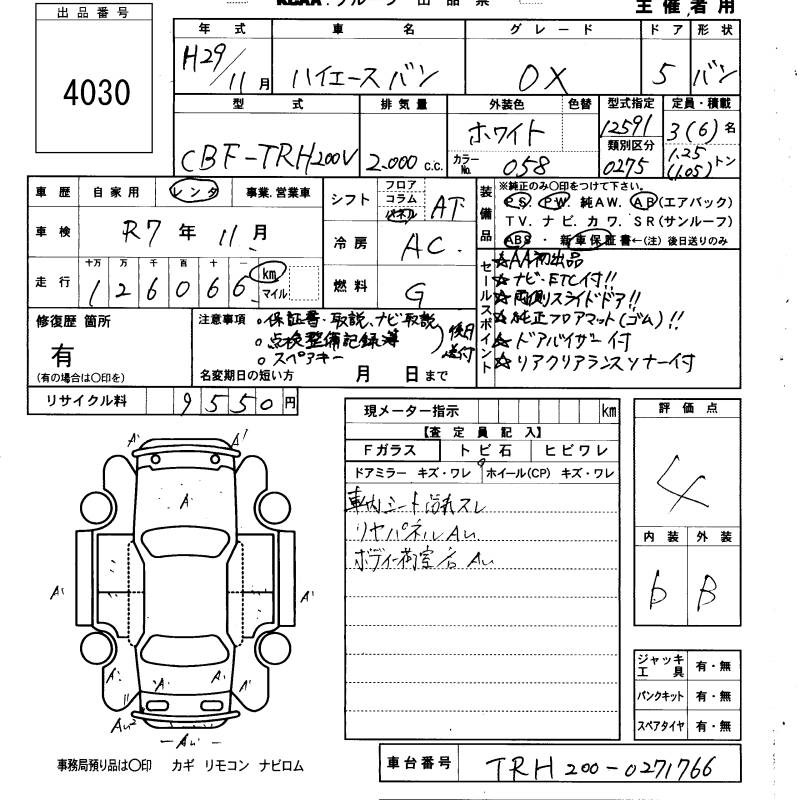 主催者用
出品番号
4030
年式 車名 グレード ドア 形状
H29/11月 ハイエースバン DX 5 バン
型式 排気量 外装色 色替 型式指定 定員・積載
CBF-TRH200V 2.000c.c. ホワイト カラーNo. 058 12591 類別区分 0275 3(6)名 1.25(1.05)トン
車歴 自家用 レンタ 事業.営業車
車検 R7年 11月
走行 十万 万 千 百 十 一
126066 km マイル
シフト フロア コラム パネル AT
冷房 AC
燃料 G
装備品 ※純正のみ〇印をつけて下さい。
PS PW 純AW. AB(エアバック)
TV. ナビ. カワ. SR(サンルーフ)
ABS ・ 新車保証書←(注) 後日送りのみ
セールスポイント
☆AA初出品
☆ナビ・ETC付!!
☆両側スライドドア!!
☆純正フロアマット(ゴム)!!
☆ドアバイザー付
☆リアクリアランスソナー付
修復歴 箇所
有
(有の場合は〇印を)
注意事項 ・保証書・取説、ナビ取説
○点検整備記録簿
○スペアキー
後日送付
名変期日の短い方 月 日まで
リサイクル料 9550円
現メーター指示 km
【査定員記入】
Fガラス トビ石 ヒビワレ
ドアミラー キズ・ワレ ホイール(CP) キズ・ワレ
車内シート汚れスレ
リヤパネルAu
ボディー荷室右Au
評価点
4
内装 外装
b B
A' A' A A' A' A' A' A' A' Au² Au
ジャッキ工具 有・無
パンクキット 有・無
スペアタイヤ 有・無
事務局預り品は〇印 カギ リモコン ナビロム
車台番号 TRH200-0271766